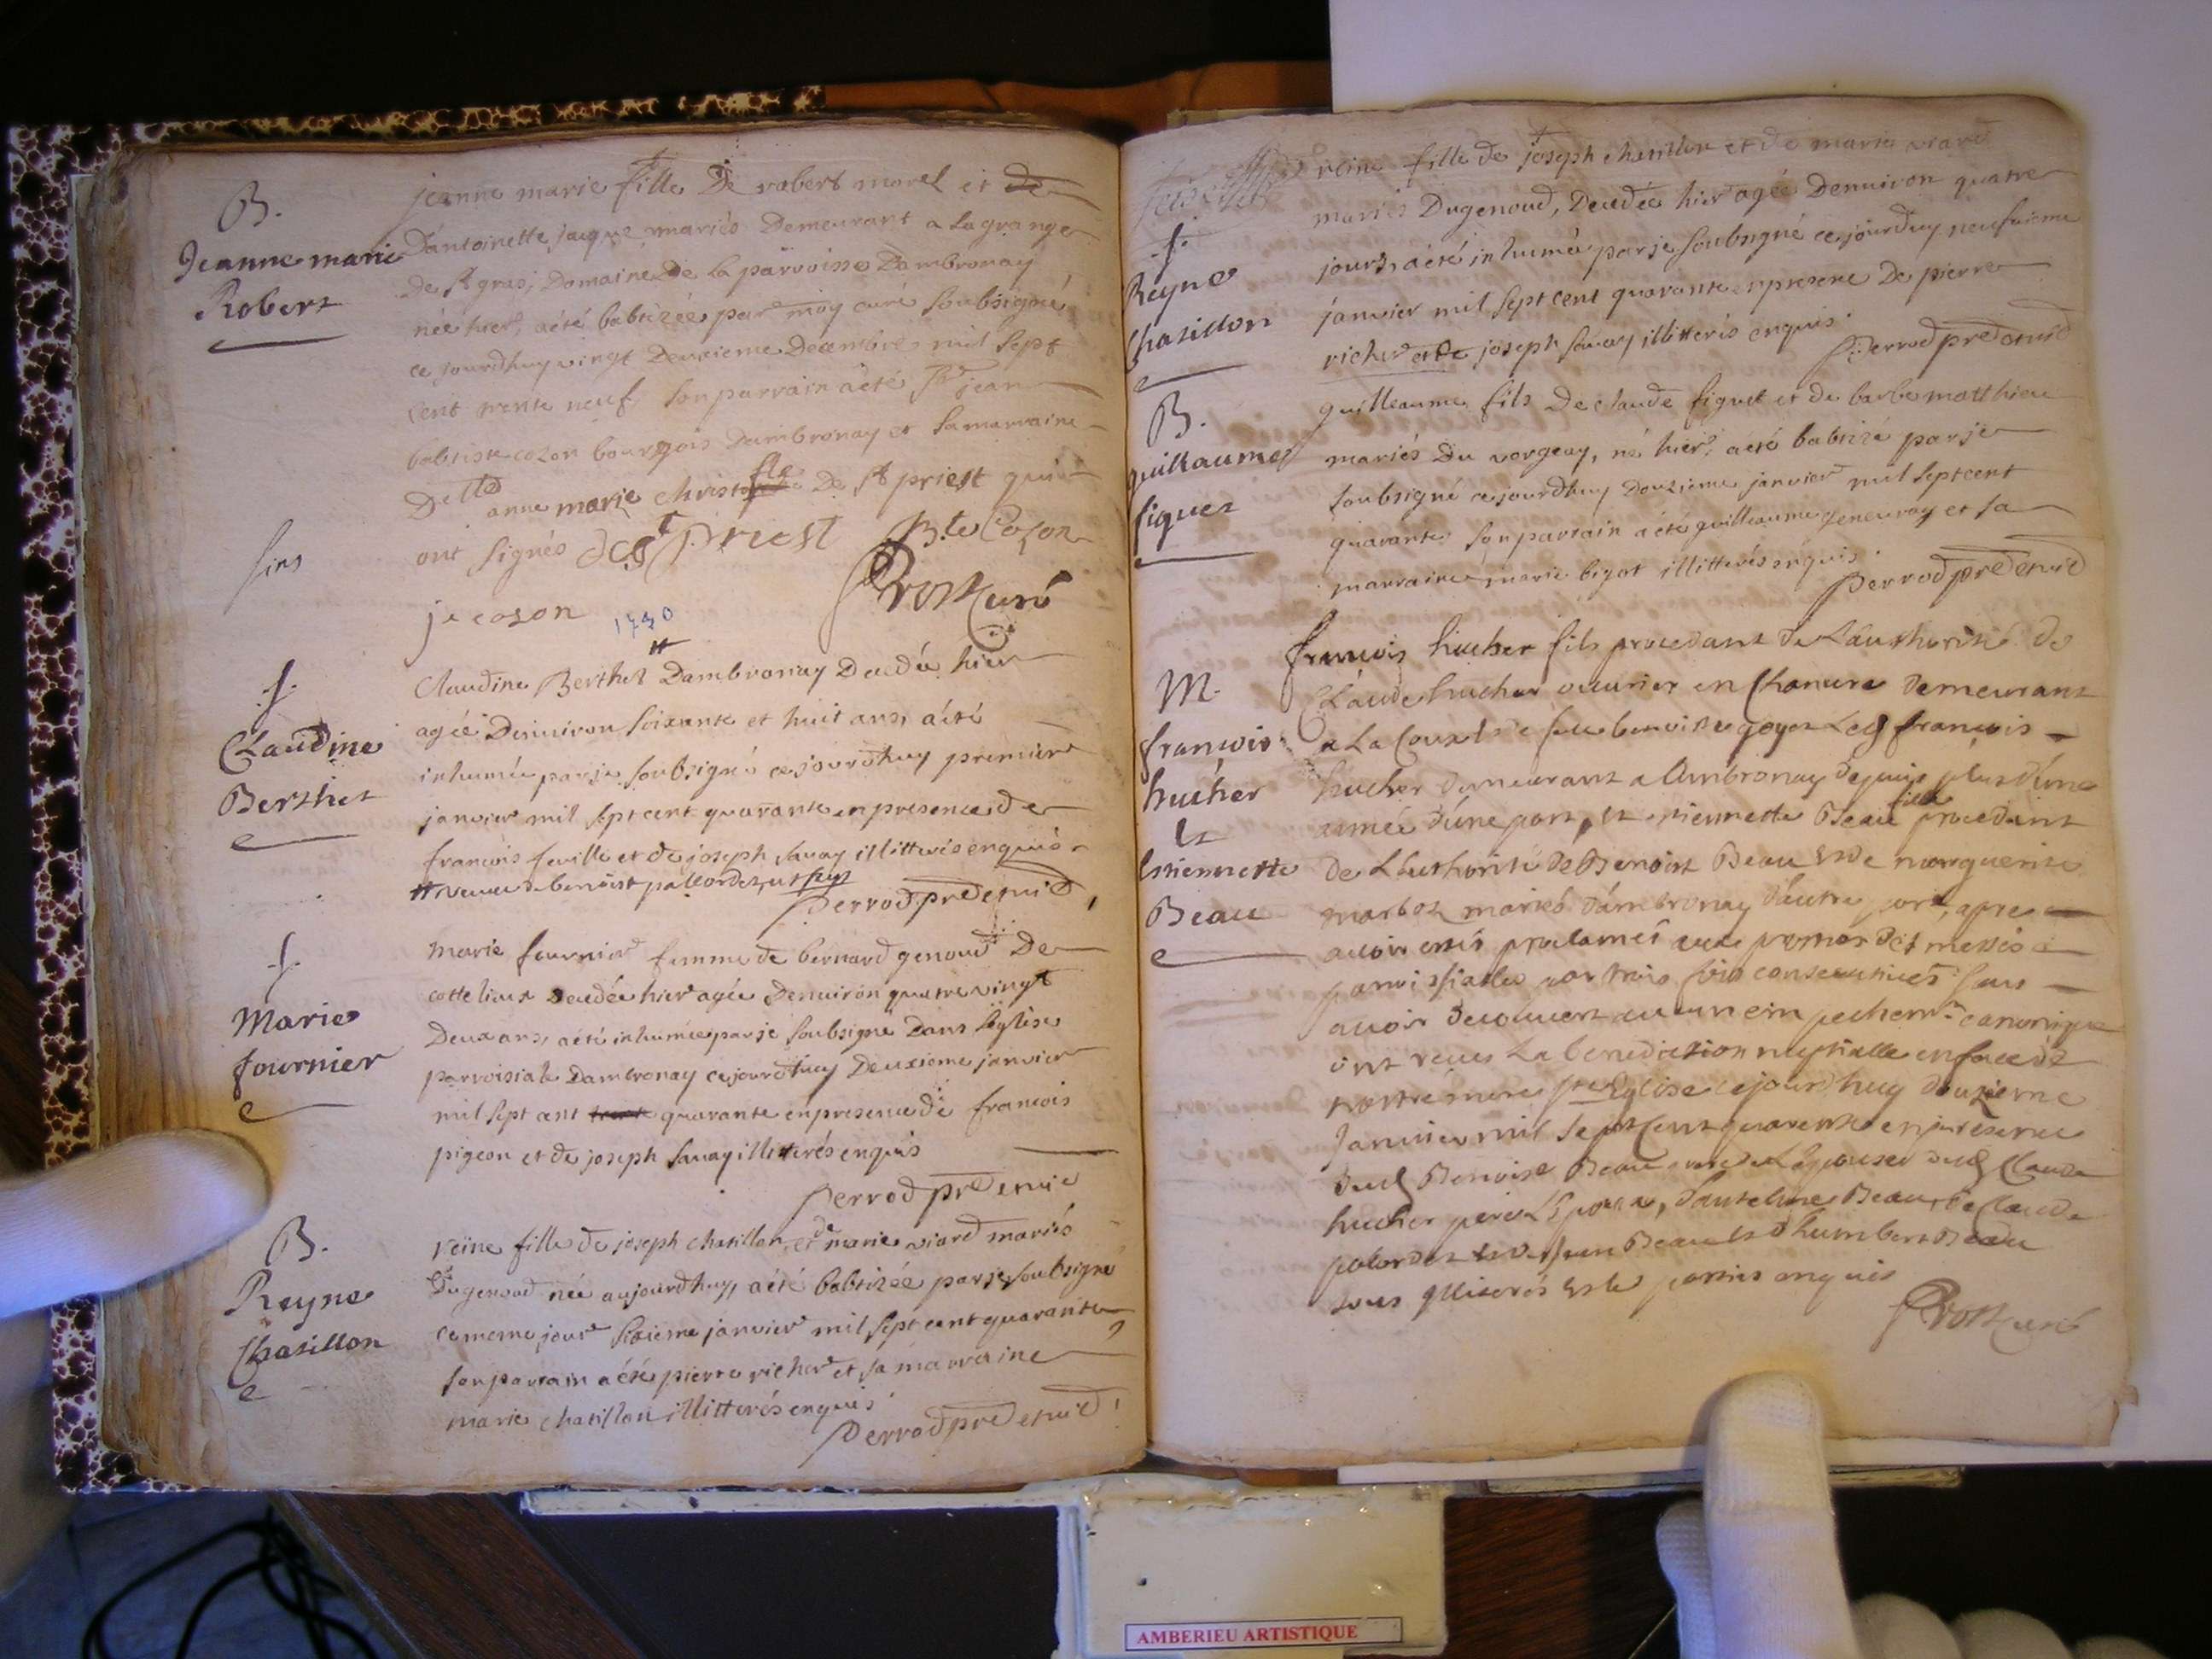 B.
Jeanne marie
Robert
jeanne marie fille De robert morel et de
Dantoinette jaque mariés Demeurant a lagrange
De St gras, Domaine De la parroisse Dambronay
née hier, aété babtizée par moy curé soubsigné
ce jourdhuy vingt Deuxieme Decembre mil sept
cent trente neuf son parrain aété Sr jean
babtiste cozon bourgois Dambronay et sa marraine
Delle anne marie christ De St priest qui
ont signés De St Priest B.te Cozon
fins
je cozon
Prost curé
1740
f.
Claudine
Berthet
Claudine Berthet Dambronay Decedée hier
agée Denuiron soixante et huit ans, aété
inhumée par je soubsigné cejourdhuy premier
janvier mil sept cent quarante enpresence de
francois feuille et de joseph savay illitterés enquis
veuve de benoist pallordet
Perrod pre etvic
f.
Marie
fournier
marie fournier femme de bernard genoud De
cottelieux Decedée hier agée Denuiron quatre vingt
Deux ans, aété inhumée par je soubsigné Dans l'église
parroisiale Dambronay cejourdhuy Deuxieme janvier
mil sept cent trente quarante enpresence de francois
pigeon et de joseph savay illitterés enquis
Perrod pre etvic
B.
Reyne
Chasillon
reine fille de joseph chatillon et de marie viard mariés
Dugenoud née aujourdhuy, aété babtizée par je soubsigné
ce meme jour sixieme janvier mil sept cent quarante
son parrain aété pierre richer et sa marraine
marie chatillon illitterés enquis
Perrod pre etvic
f.
Reyne
Chasillon
reine fille de joseph chatillon et de marie viard
mariés Dugenoud, Decedée hier agée Denuiron quatre
jours, aété inhumée par je soubsigné ce jourdhuy neufvieme
janvier mil sept cent quarante enpresence De pierre
richer et de joseph savay illitterés enquis
Perrod pre etvic
B.
guillaume
figuet
guilleaume fils De claude figuet et de barbe matthieu
mariés Du vorgeay, né hier, aeté babtizé par je
soubsigné cejourdhuy Douzieme janvier mil sept cent
quarante son parrain aété guilleaume genevray et sa
marraine marie bigot illitterés enquis
Perrod pre etvic
M.
francois
hucher
Et
Estiennette
Beau
francois hucher fils procedant De L'authorité de
Claude hucher ouurier en Chanure demeurant
a La Coux et de feu benoiste goyet Led francois
hucher demeurant a Ambronay depuis plus d'une
année d'une part, Et estiennette Beau fille procedant
de L'authorité de Benoist Beau Et de marguerite
marbot mariés d'ambronay d'autre part, apres
avoir estés proclamés aux prones des messes
parroissialles par trois fois consecutives sans
avoir decouvert aucun empechemt canonique
ont receus La benediction nuptialle en face de
nostre mere Ste Eglise cejourdhuy douzieme
Janvier mil sept Cent quarente en presence
dud Benoist Beau pere de L'epouse dud Claude
hucher pere de L'epoux, d'antelme Beau, de claude
palordet Et de jean Beau Et d'humbert Beau
tous illiterés Et les parties enquis
Prost curé
AMBERIEU ARTISTIQUE